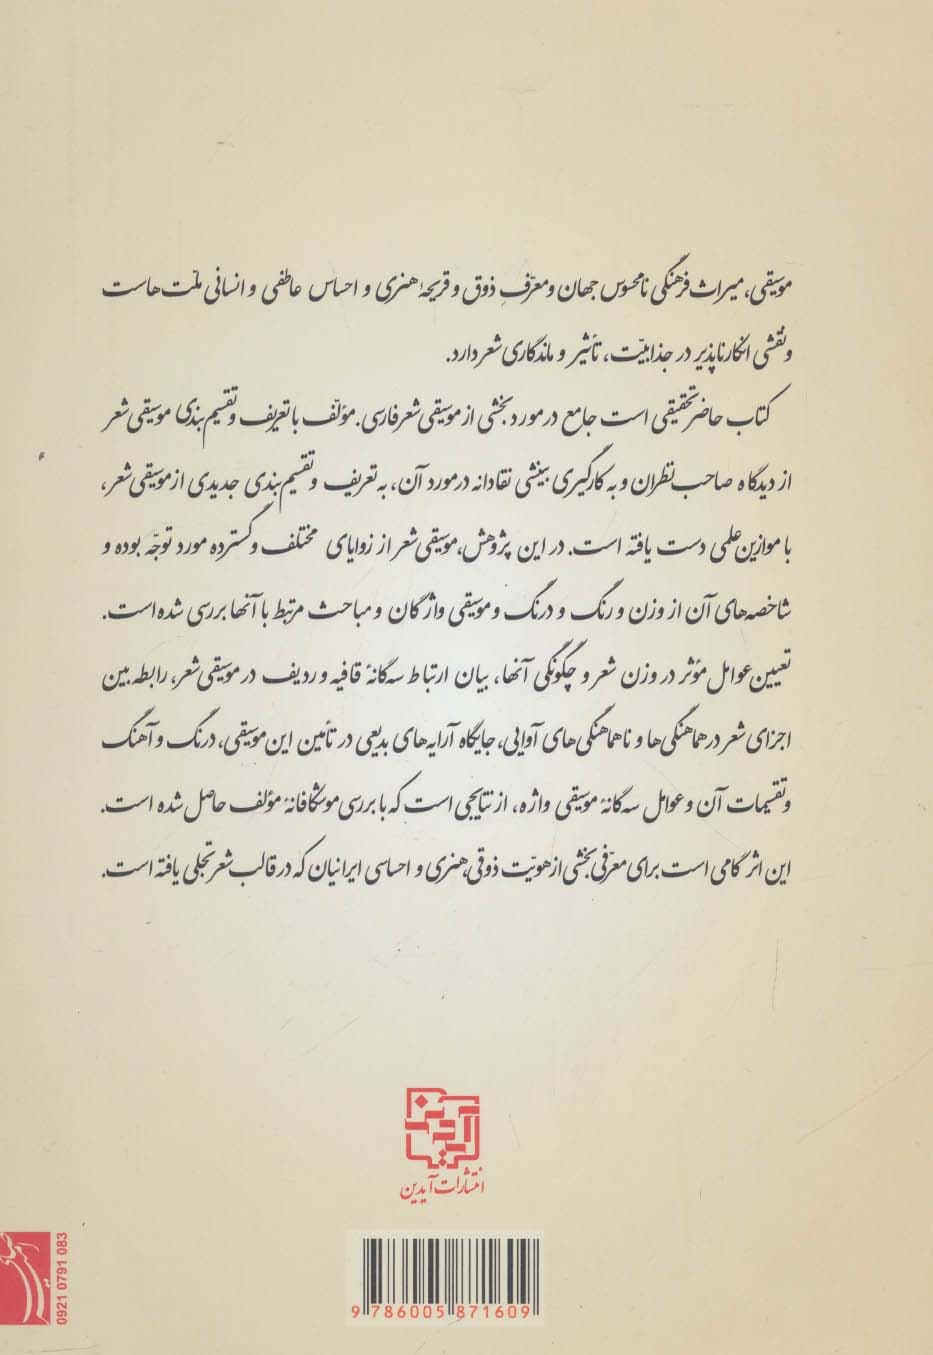 موسیقی، میراث فرهنگی نامحسوس جهان و معرّفِ ذوق و قریحهٔ هنری و احساس عاطفی و انسانی ملّت هاست
و نقشی انکارناپذیر در جذابیّت، تأثیر و ماندگاری شعر دارد.
کتاب حاضر تحقیقی است جامع در مورد بخشی از موسیقی شعر فارسی. مؤلّف با تعریف و تقسیم بندی موسیقی شعر
از دیدگاه صاحب نظران و به کارگیری بینشی نقادانه در مورد آن، به تعریف و تقسیم بندی جدیدی از موسیقی شعر،
با موازین علمی دست یافته است. در این پژوهش، موسیقی شعر از زوایای مختلف و گسترده مورد توجّه بوده و
شاخصه های آن از وزن و رنگ و درنگ و موسیقی واژگان و مباحث مرتبط با آنها بررسی شده است.
تعیین عوامل مؤثر در وزن شعر و چگونگی آنها، بیان ارتباط سه گانهٔ قافیه و ردیف در موسیقی شعر، رابطه بین
اجزای شعر در هماهنگی ها و ناهماهنگی های آوایی، جایگاه آرایه های بدیعی در تأمین این موسیقی، درنگ و آهنگ
و تقسیمات آن و عوامل سه گانهٔ موسیقی واژه، از نتایجی است که با بررسی موشکافانهٔ مؤلف حاصل شده است.
این اثر گامی است برای معرّفی بخشی از هویّت ذوقی، هنری و احساسی ایرانیان که در قالب شعر تجلی یافته است.
آیدین
انتشارات آیدین
9 786005 871609
0921 0791 083